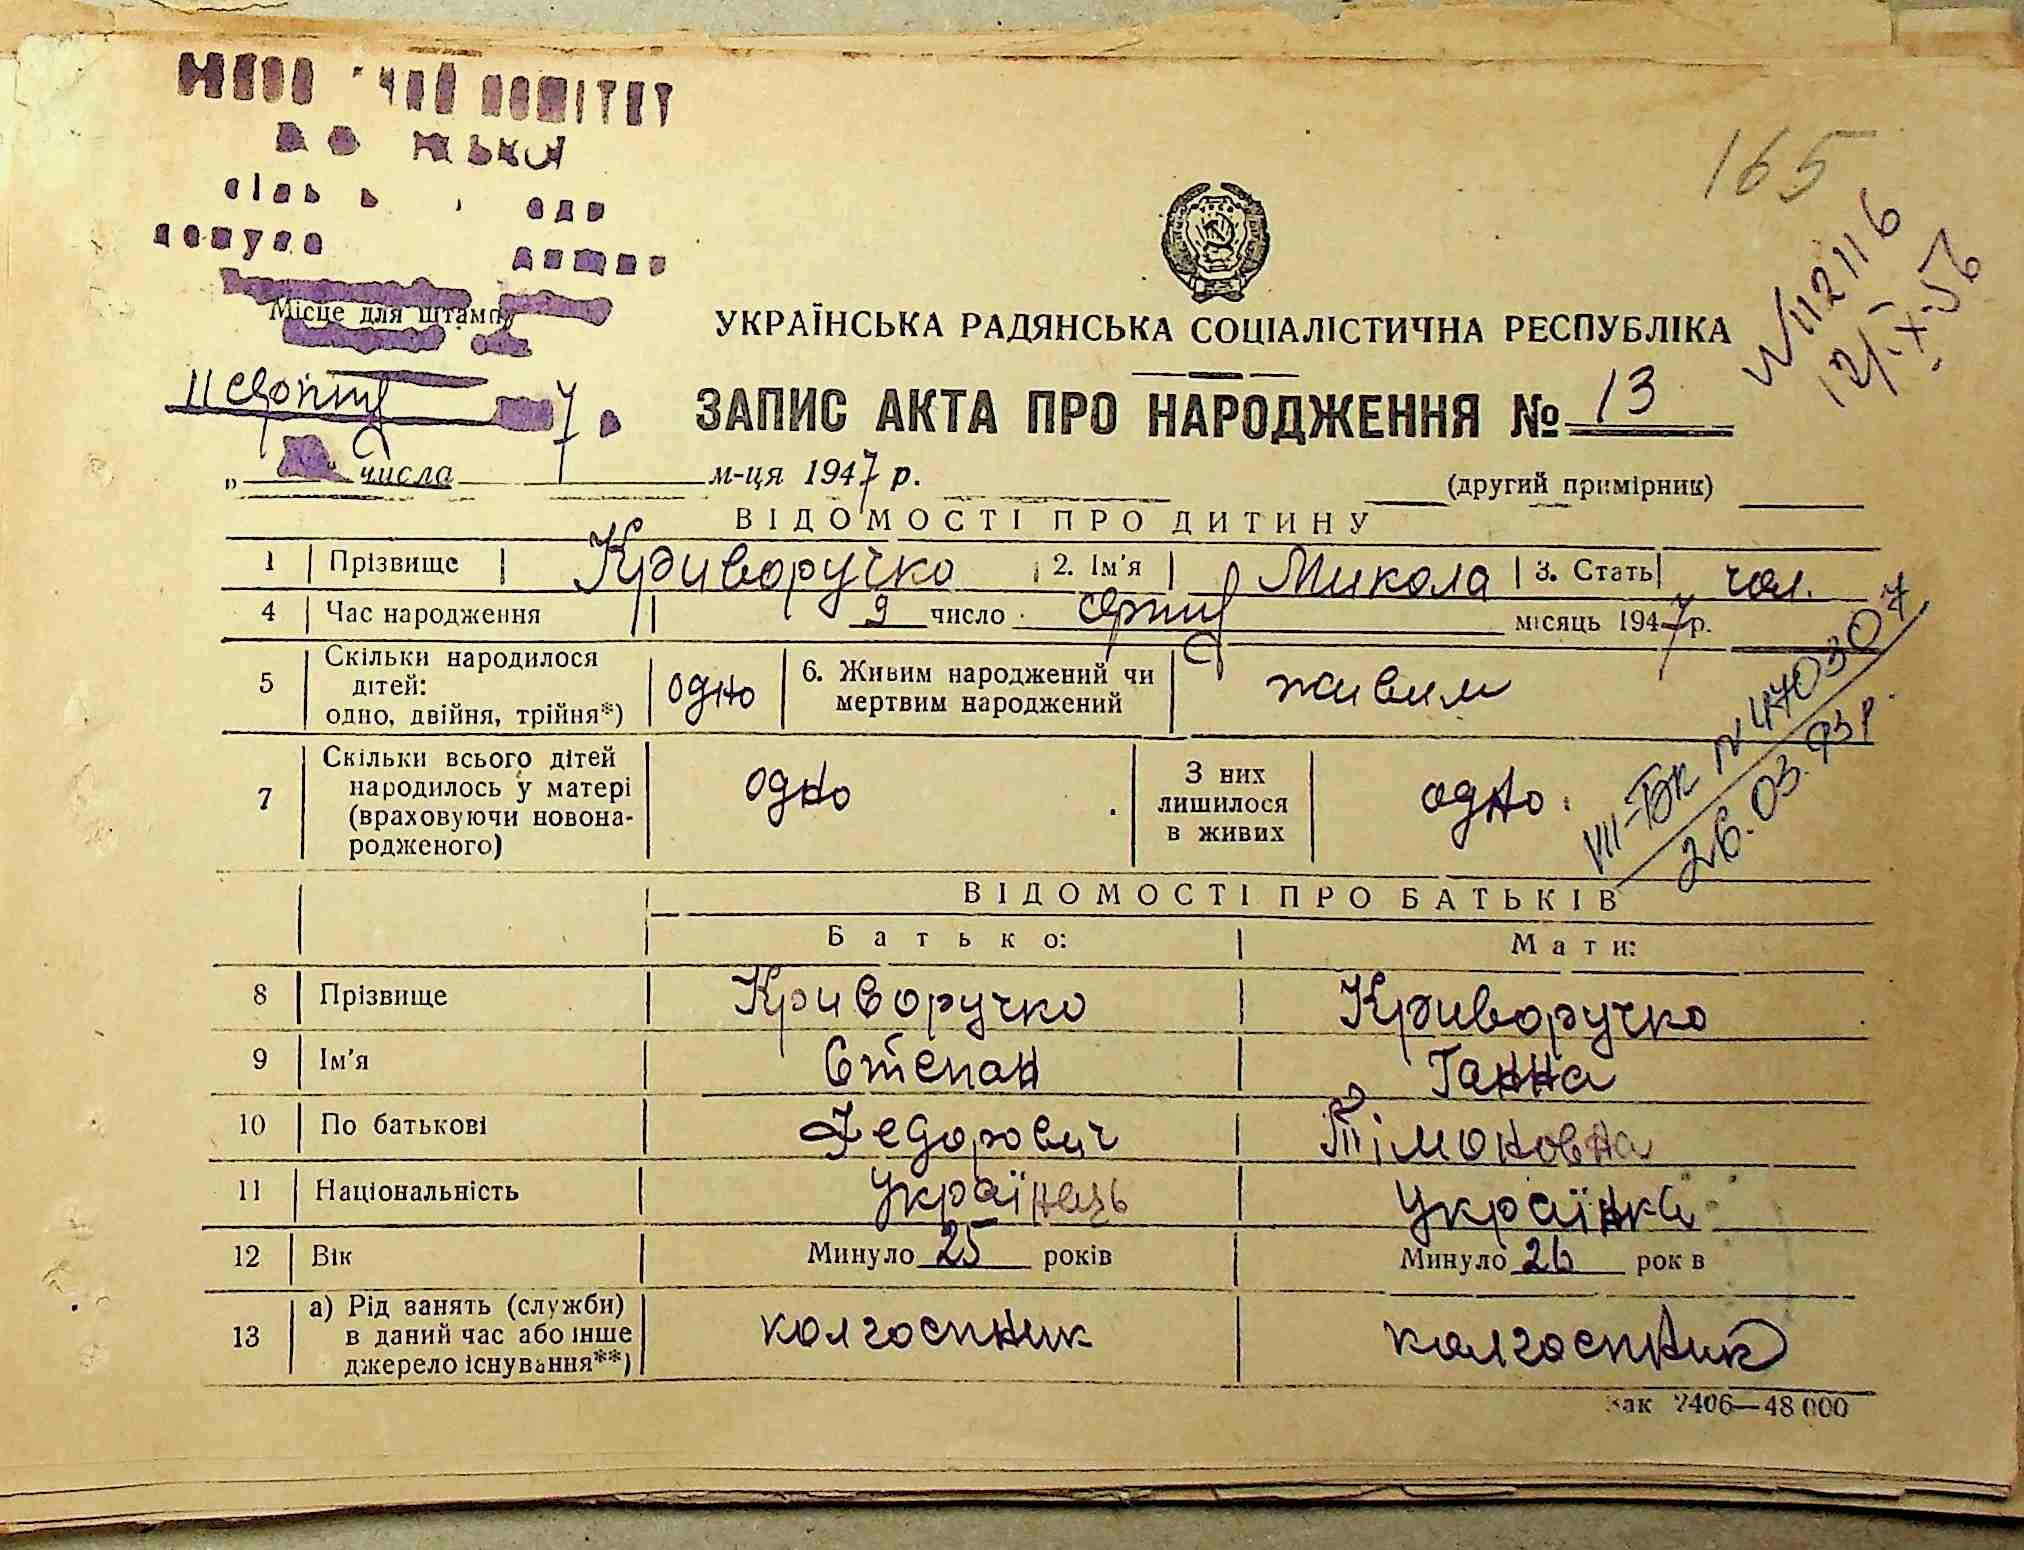 КОМІТЕТ
165
Місце для штампу
УКРАЇНСЬКА РАДЯНСЬКА СОЦІАЛІСТИЧНА РЕСПУБЛІКА
N 112116
12/ІХ-56
11 серпня 7
ЗАПИС АКТА ПРО НАРОДЖЕННЯ № 13
" числа м-ця 1947 р. (другий примірник)
ВІДОМОСТІ ПРО ДИТИНУ
1 Прізвище Криворучко 2. Ім'я Микола 3. Стать чол.
4 Час народження 9 число серпня місяць 1947 р.
5 Скільки народилося дітей: одно, двійня, трійня*) одно 6. Живим народжений чи мертвим народжений живим
7 Скільки всього дітей народилось у матері (враховуючи новона-родженого) одно З них лишилося в живих одно.
VII-БК N 470307
26.03.93 р.
ВІДОМОСТІ ПРО БАТЬКІВ
Батько: Мати:
8 Прізвище Криворучко Криворучко
9 Ім'я Степан Ганна
10 По батькові Федорович Тімоховна
11 Національність Українець Українка
12 Вік Минуло 25 років Минуло 26 рок в
13 а) Рід занять (служби) в даний час або інше джерело існування**) колгоспник колгоспник
Зак 2406—48 000